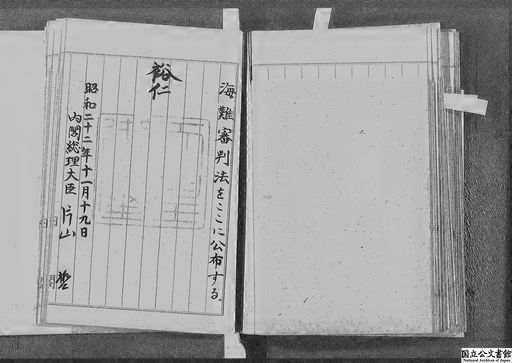 海難審判法をここに公布する。
裕仁
昭和二十二年十一月十九日
内閣総理大臣 片山 哲
国立公文書館
National Archives of Japan